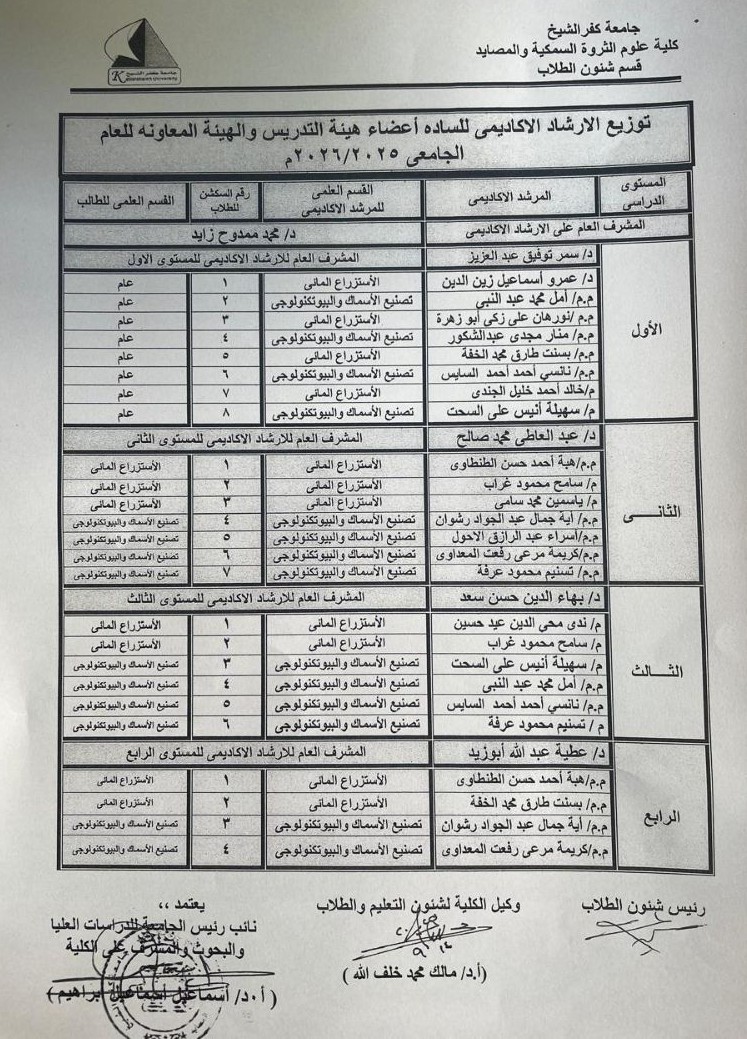 جامعة كفر الشيخ
كلية علوم الثروة السمكية والمصايد
قسم شئون الطلاب
جامعة كفر الشيخ
Kafrelsheikh University
توزيع الارشاد الاكاديمى للساده أعضاء هيئة التدريس والهيئة المعاونه للعام
الجامعى ٢٠٢٦/٢٠٢٥م
المستوى الدراسى المرشد الاكاديمى القسم العلمى للمرشد الاكاديمى رقم السكشن للطلاب القسم العلمى للطالب
المشرف العام على الارشاد الاكاديمى د/ محمد ممدوح زايد
الأول د/ سمر توفيق عبد العزيز المشرف العام للارشاد الاكاديمى للمستوى الاول
د/ عمرو أسماعيل زين الدين الأستزراع المائى ١ عام
م.م/ أمل محمد عبد النبي تصنيع الأسماك والبيوتكنولوجى ٢ عام
م.م /نورهان على زكى أبو زهرة الأستزراع المائى ٣ عام
م.م/ منار مجدى عبدالشكور تصنيع الأسماك والبيوتكنولوجى ٤ عام
م.م/ بسنت طارق محمد الخفة الأستزراع المائى ٥ عام
م.م/ نانسي أحمد أحمد السايس تصنيع الأسماك والبيوتكنولوجى ٦ عام
م/خالد أحمد خليل الجندى الأستزراع المائى ٧ عام
م/ سهيلة أنيس على السحت تصنيع الأسماك والبيوتكنولوجى ٨ عام
الثانــى د/ عبد العاطى محمد صالح المشرف العام للارشاد الاكاديمى للمستوى الثانى
م.م/هبة أحمد حسن الطنطاوى الأستزراع المائى ١ الأستزراع المائى
م/ سامح محمود غراب الأستزراع المائى ٢ الأستزراع المائى
م/ ياسمين محمد سامى الأستزراع المائى ٣ الأستزراع المائى
م.م/ أية جمال عبد الجواد رشوان تصنيع الأسماك والبيوتكنولوجى ٤ تصنيع الأسماك والبيوتكنولوجى
م.م/أسراء عبد الرازق الاحول تصنيع الأسماك والبيوتكنولوجى ٥ تصنيع الأسماك والبيوتكنولوجى
م.م/كريمة مرعى رفعت المعداوى تصنيع الأسماك والبيوتكنولوجى ٦ تصنيع الأسماك والبيوتكنولوجى
م.م/ تسنيم محمود عرفة تصنيع الأسماك والبيوتكنولوجى ٧ تصنيع الأسماك والبيوتكنولوجى
الثــالث د/ بهاء الدين حسن سعد المشرف العام للارشاد الاكاديمى للمستوى الثالث
م/ ندى محي الدين عيد حسين الأستزراع المائى ١ الأستزراع المائى
م/ سامح محمود غراب الأستزراع المائى ٢ الأستزراع المائى
م/ سهيلة أنيس على السحت تصنيع الأسماك والبيوتكنولوجى ٣ تصنيع الأسماك والبيوتكنولوجى
م.م/ أمل محمد عبد النبي تصنيع الأسماك والبيوتكنولوجى ٤ تصنيع الأسماك والبيوتكنولوجى
م.م/ نانسي أحمد أحمد السايس تصنيع الأسماك والبيوتكنولوجى ٥ تصنيع الأسماك والبيوتكنولوجى
م / تسنيم محمود عرفة تصنيع الأسماك والبيوتكنولوجى ٦ تصنيع الأسماك والبيوتكنولوجى
الرابع د/ عطية عبد الله أبوزيد المشرف العام للارشاد الاكاديمى للمستوى الرابع
م.م/هبة أحمد حسن الطنطاوى الأستزراع المائى ١ الأستزراع المائى
م.م/ بسنت طارق محمد الخفة الأستزراع المائى ٢ الأستزراع المائى
م.م/ أية جمال عبد الجواد رشوان تصنيع الأسماك والبيوتكنولوجى ٣ تصنيع الأسماك والبيوتكنولوجى
م.م/كريمة مرعى رفعت المعداوى تصنيع الأسماك والبيوتكنولوجى ٤ تصنيع الأسماك والبيوتكنولوجى
رئيس شئون الطلاب
وكيل الكلية لشئون التعليم والطلاب
(أ.د/ مالك محمد خلف الله )
يعتمد ،،
نائب رئيس الجامعة للدراسات العليا
والبحوث والمشرف على الكلية
( أ.د/ أسماعيل أسماعيل ابراهيم )